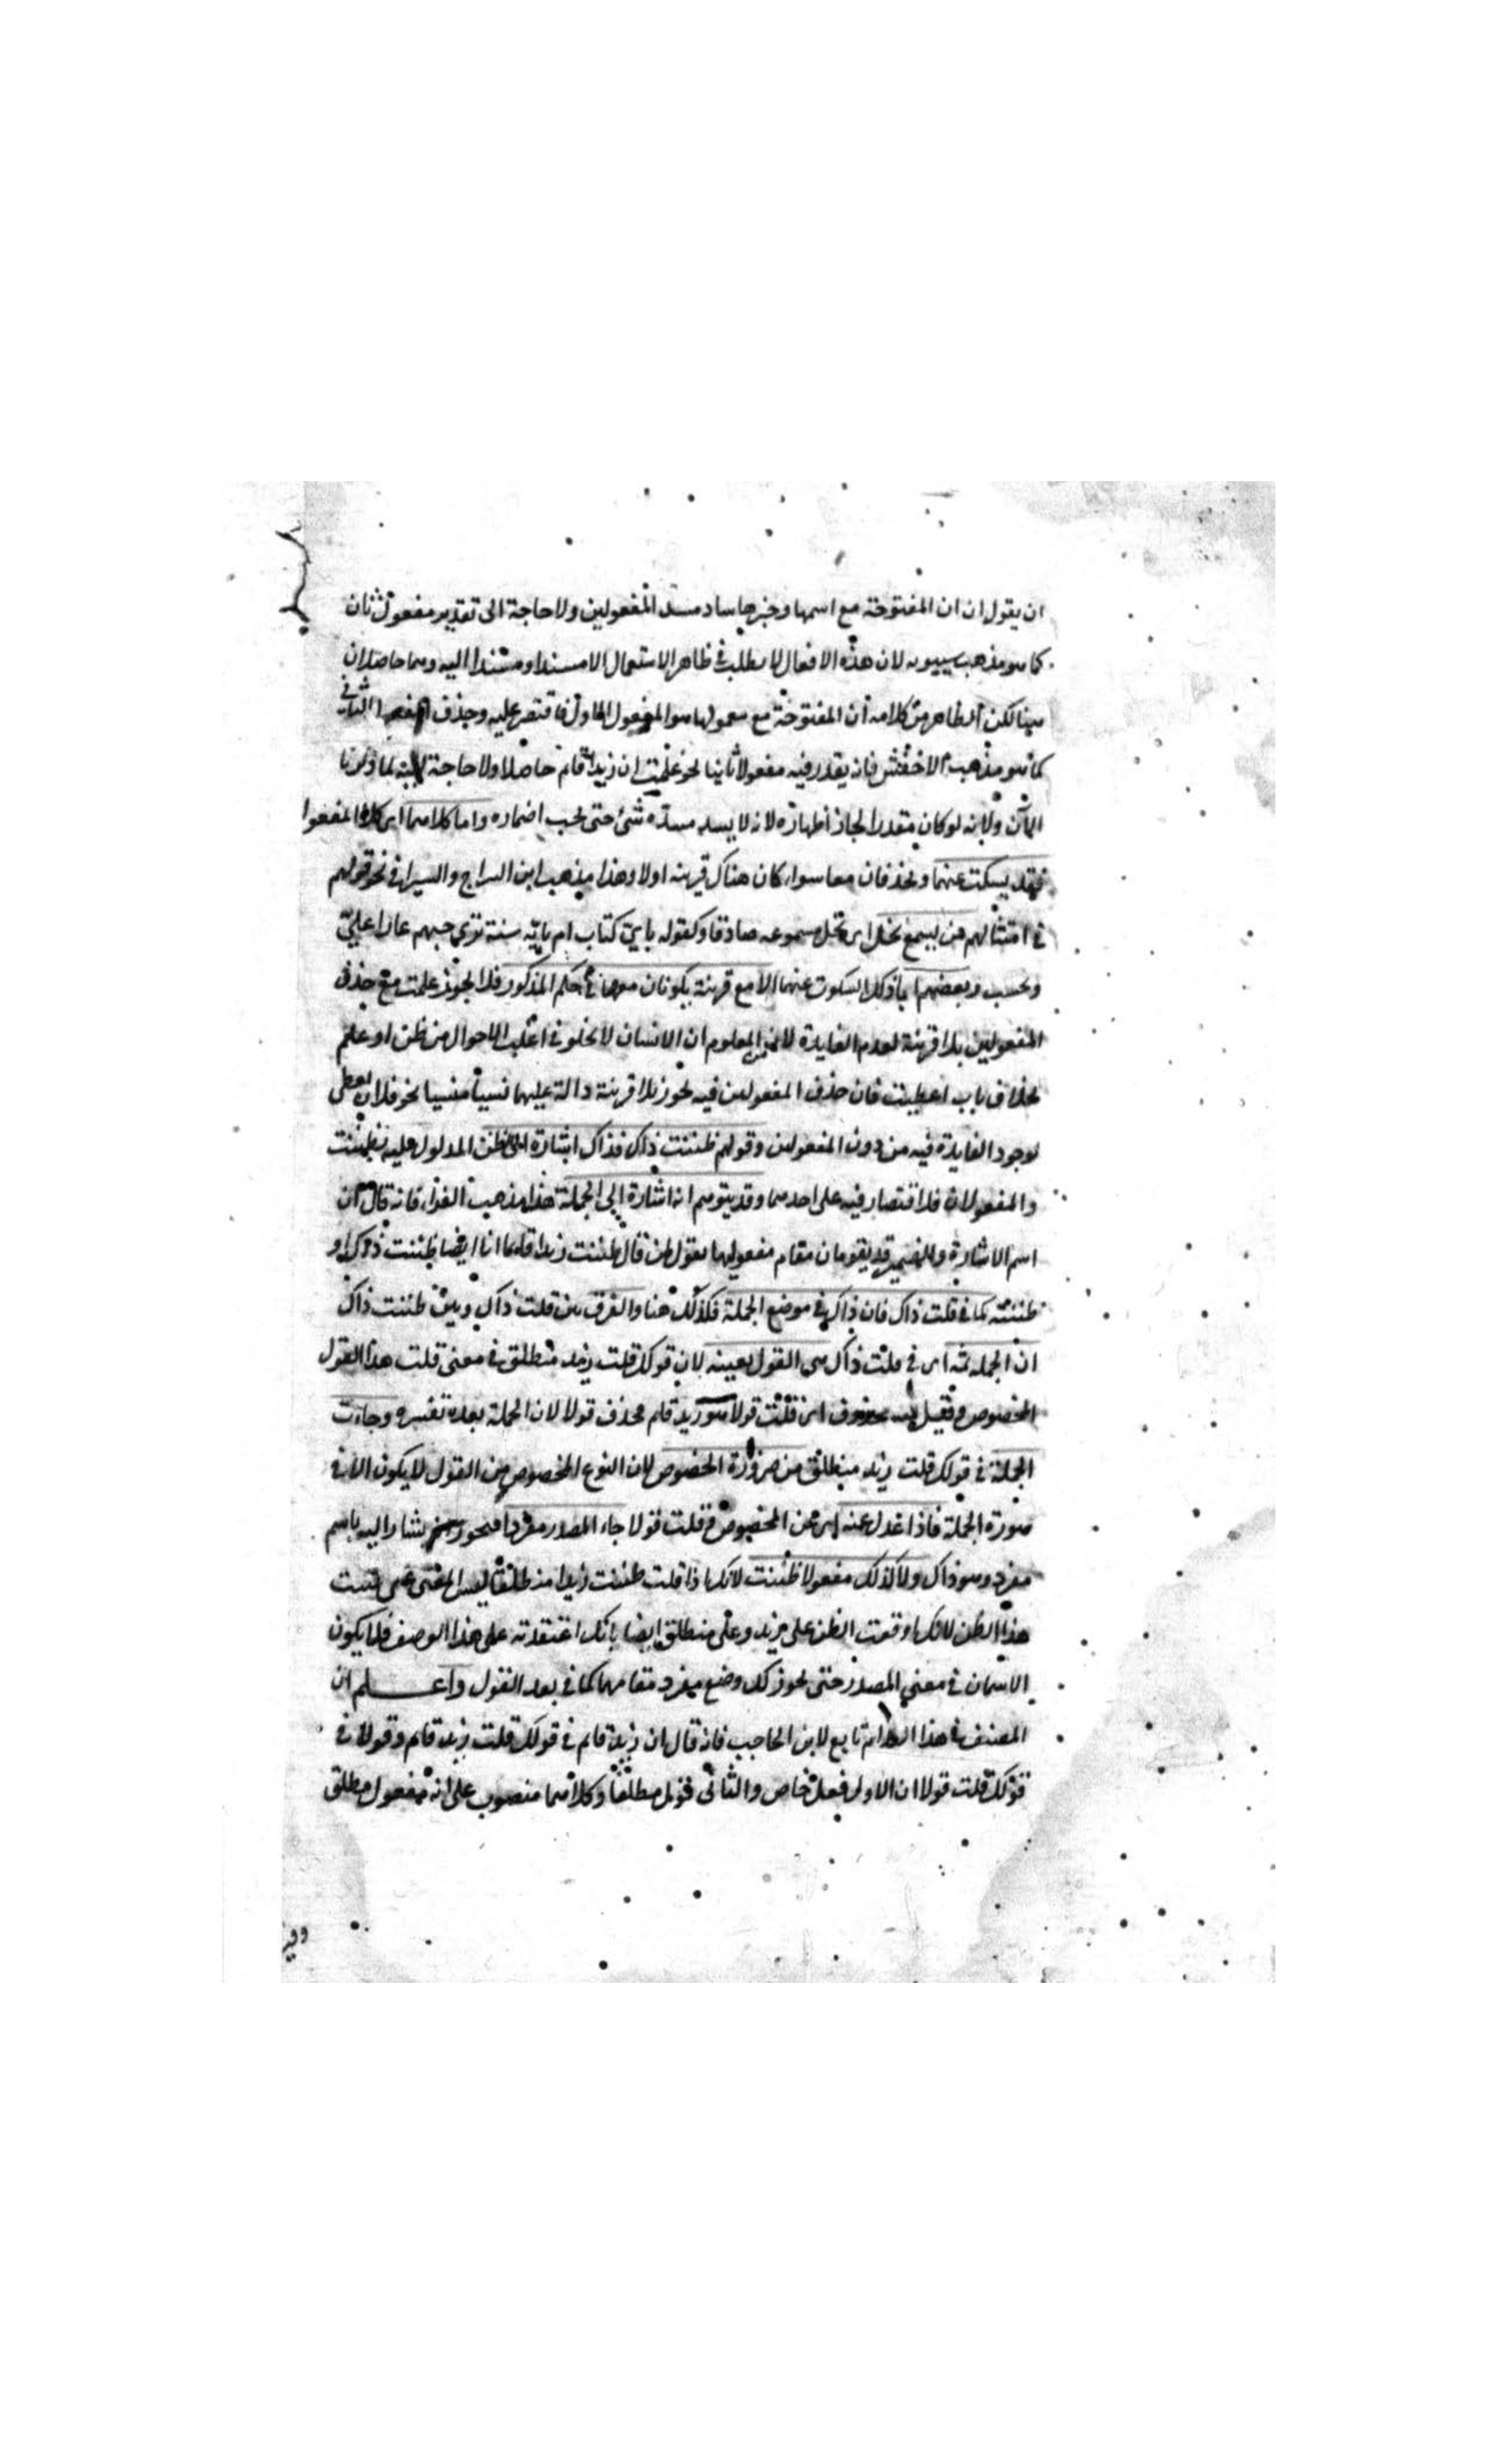 ان يقول ان ان المفتوحة مع اسمها وخبرها ساد مسد المفعولين ولا حاجة الى تقدير مفعول ثان
كما هو مذهب سيبويه لان هذه الافعال لا يطلب في ظاهر الاستعمال الا مسندا ومسندا اليه وهما حاصلان
هنا لكن الظاهر من كلامه ان المفتوحة مع معمولها هو المفعول الاول فاقتصر عليه وحذف المفعول الثاني
كما هو مذهب الاخفش فانه يقدر فيه مفعولا ثانيا نحو علمت ان زيدا قائم حاصلا ولا حاجة اليه لما ذكرنا
الآن ولانه لو كان مقدرا لجاز اظهاره لانه لا يسد مسده شئ حتى يجب اضماره واما كلاهما اى كلا المفعولا
فقد يسكت عنهما ويحذفان معا سواء كان هناك قرينة اولا وهذا مذهب ابن السراج والسيرافي نحو قولهم
في امثالهم من يسمع يخل اى يخل مسموعه صادقا وكقوله باي كتاب ام باية سنة ترى حبهم عارا علي
وتحسب وبعضهم السكوت عنهما الا مع قرينة يكونان معها في حكم المذكور فلا يجوز علمت مع حذف
المفعولين بلا قرينة لعدم الفايدة لان من المعلوم ان الانسان لا يخلو في اغلب الاحوال من ظن او علم
بخلاف باب اعطيت فان حذف المفعولين فيه يجوز بلا قرينة دالة عليهما نسيا منسيا نحو فلان يعطى
لوجود الفايدة فيه من دون المفعولين وقولهم ظننت ذاك فذاك اشارة الى الظن المدلول عليه بظننت
والمفعولان فلا اقتصار فيه على احدهما وقد يتوهم انه اشارة الى الجملة هذا مذهب الفراء فانه قال ان
اسم الاشارة والضمير قد يقومان مقام مفعوليها يقول لمن قال ظننت زيدا قائما انا ايضا ظننت ذاك او
ظننته كما في قلت ذاك فان ذاك في موضع الجملة فكذلك هنا والفرق بين قلت ذاك وبين ظننت ذاك
ان الجملة ثمه اى في قلت ذاك هى القول بعينه لان قولك قلت زيد منطلق في معنى قلت هذا القول
المخصوص وقيل محذوف اى قلت قولا هو زيد قائم فحذف قولا لان الجملة بعده تفسره وجاءت
الجملة في قولك قلت زيد منطلق من ضرورة الخصوص لان النوع المخصوص من القول لا يكون الا في
صورة الجملة فاذا عدل عنه اى عن الخصوص فقلت قولا جاء المصدر مفردا فيجوز يشار اليه باسم
مفرد وهو ذاك ولا كذلك مفعولا ظننت لانك اذا قلت ظننت زيدا منطلقا ليس المعنى على ظننت
هذا الظن لانك اوقعت الظن على زيد وعلى منطلق ايضا بانك اعتقدته على هذا الوصف فلا يكون
الاسمان في معنى المصدر حتى يجوز لك وضع مفرد مقامهما كما في بعد القول واعلم ان
المصنف في هذا الكلام تابع لابن الحاجب فانه قال ان زيد قائم في قولك قلت زيد قائم وقولا في
قولك قلت قولا ان الاول فعل خاص والثاني قول مطلقا وكلاهما منصوب على انه مفعول مطلق